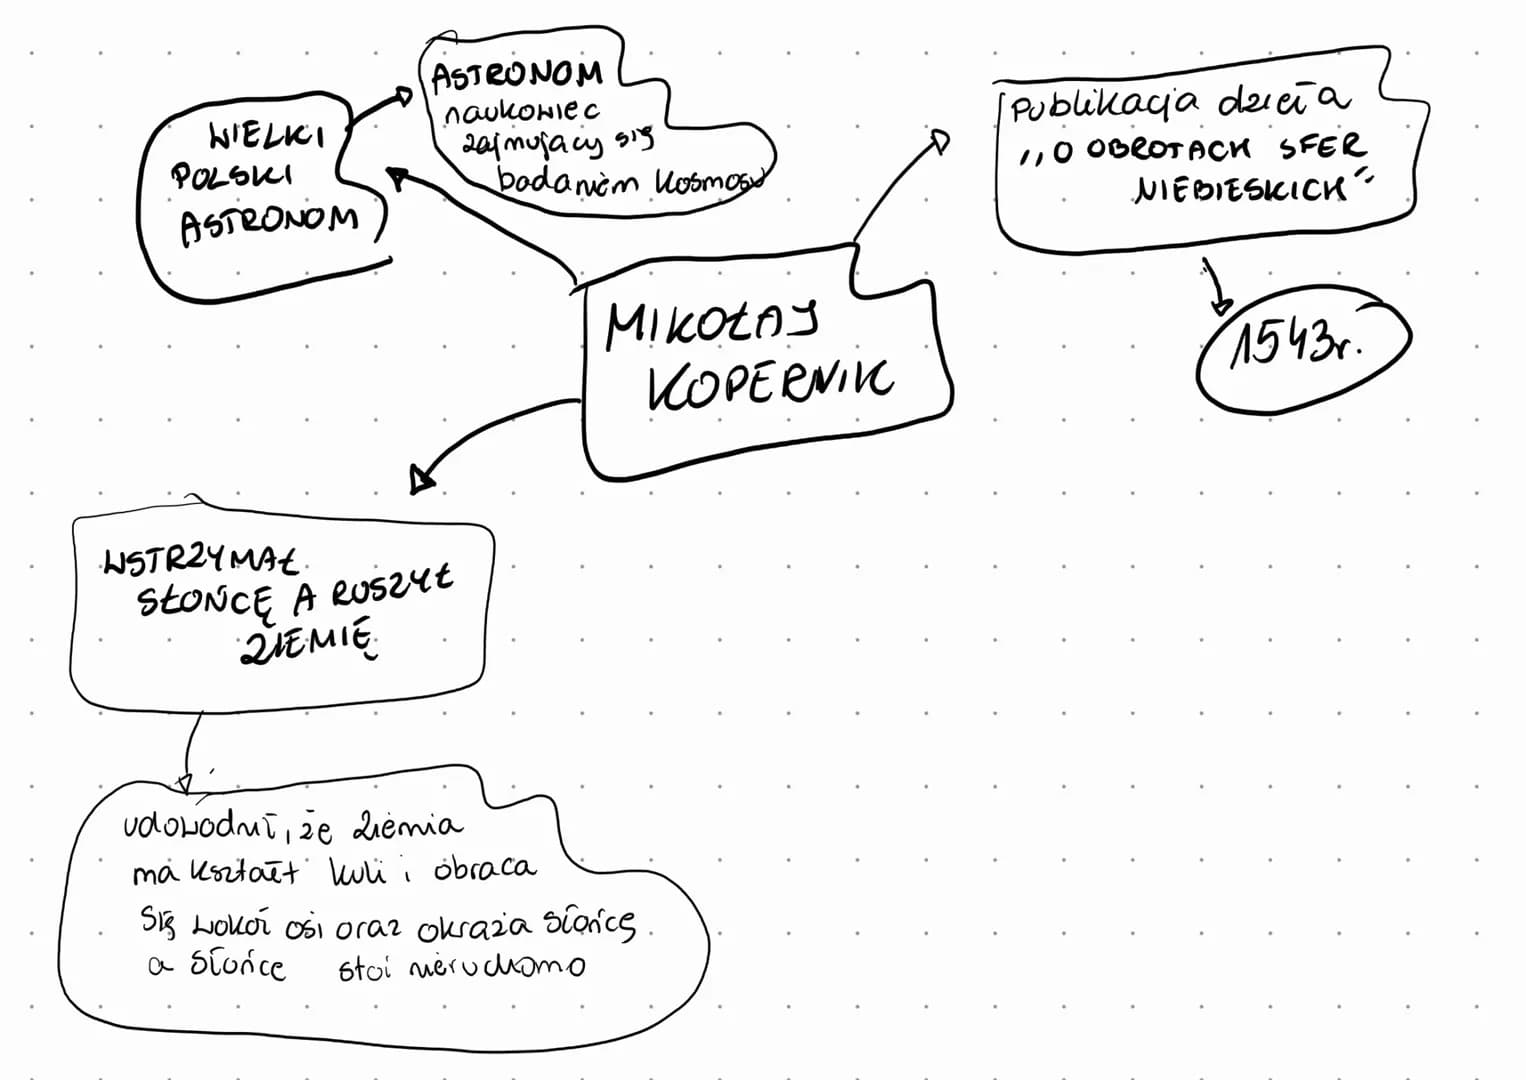 ASTRONOM
naukowiec
zajmujący się
badaniem kosmosu
WIELKI
POLSKI
ASTRONOM
Publikacja dzieła
,,O OBROTACH SFER
NIEBIESKICH"
1543r.
MIKOŁAJ
KOPERNIK
WSTRZYMAŁ
SŁOŃCĘ A RUSZYŁ
ZIEMIĘ
udowodnił, że Ziemia
ma kształt kuli i obraca
się wokół osi oraz okrąża słońce
a słońce stoi nieruchomo